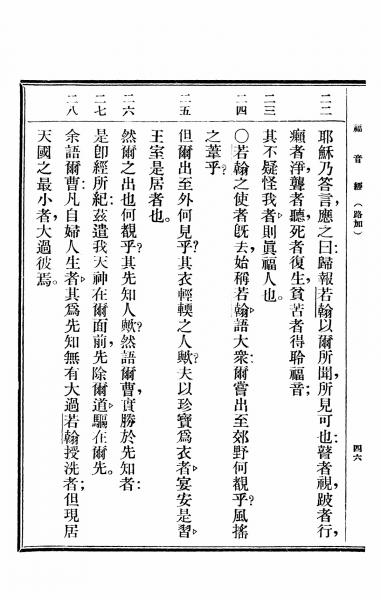 福音經（路加）　四六
二二　耶穌乃答言，應之曰：歸報若翰以爾所聞，所見可也：瞽者視，跛者行，
癩者淨，聾者聽，死者復生，貧苦者得聆福音；
二三　其不疑怪我者，則眞福人也。
二四　〇若翰之使者旣去，始稱若翰，語大衆：爾嘗出至郊野何觀乎？風搖
之葦乎？
二五　但爾出至外何見乎？其衣輕輭之人歟？夫以珍寶爲衣者，宴安是習，
王室是居者也。
二六　然爾之出也何觀乎？其先知人歟？然語爾曹，實勝於先知者：
二七　是卽經所紀：玆遣我天神在爾面前，先除爾道，驅在爾先。
二八　余語爾曹，凡自婦人生者，其爲先知無有大過若翰授洗者；但現居
天國之最小者，大過彼焉。